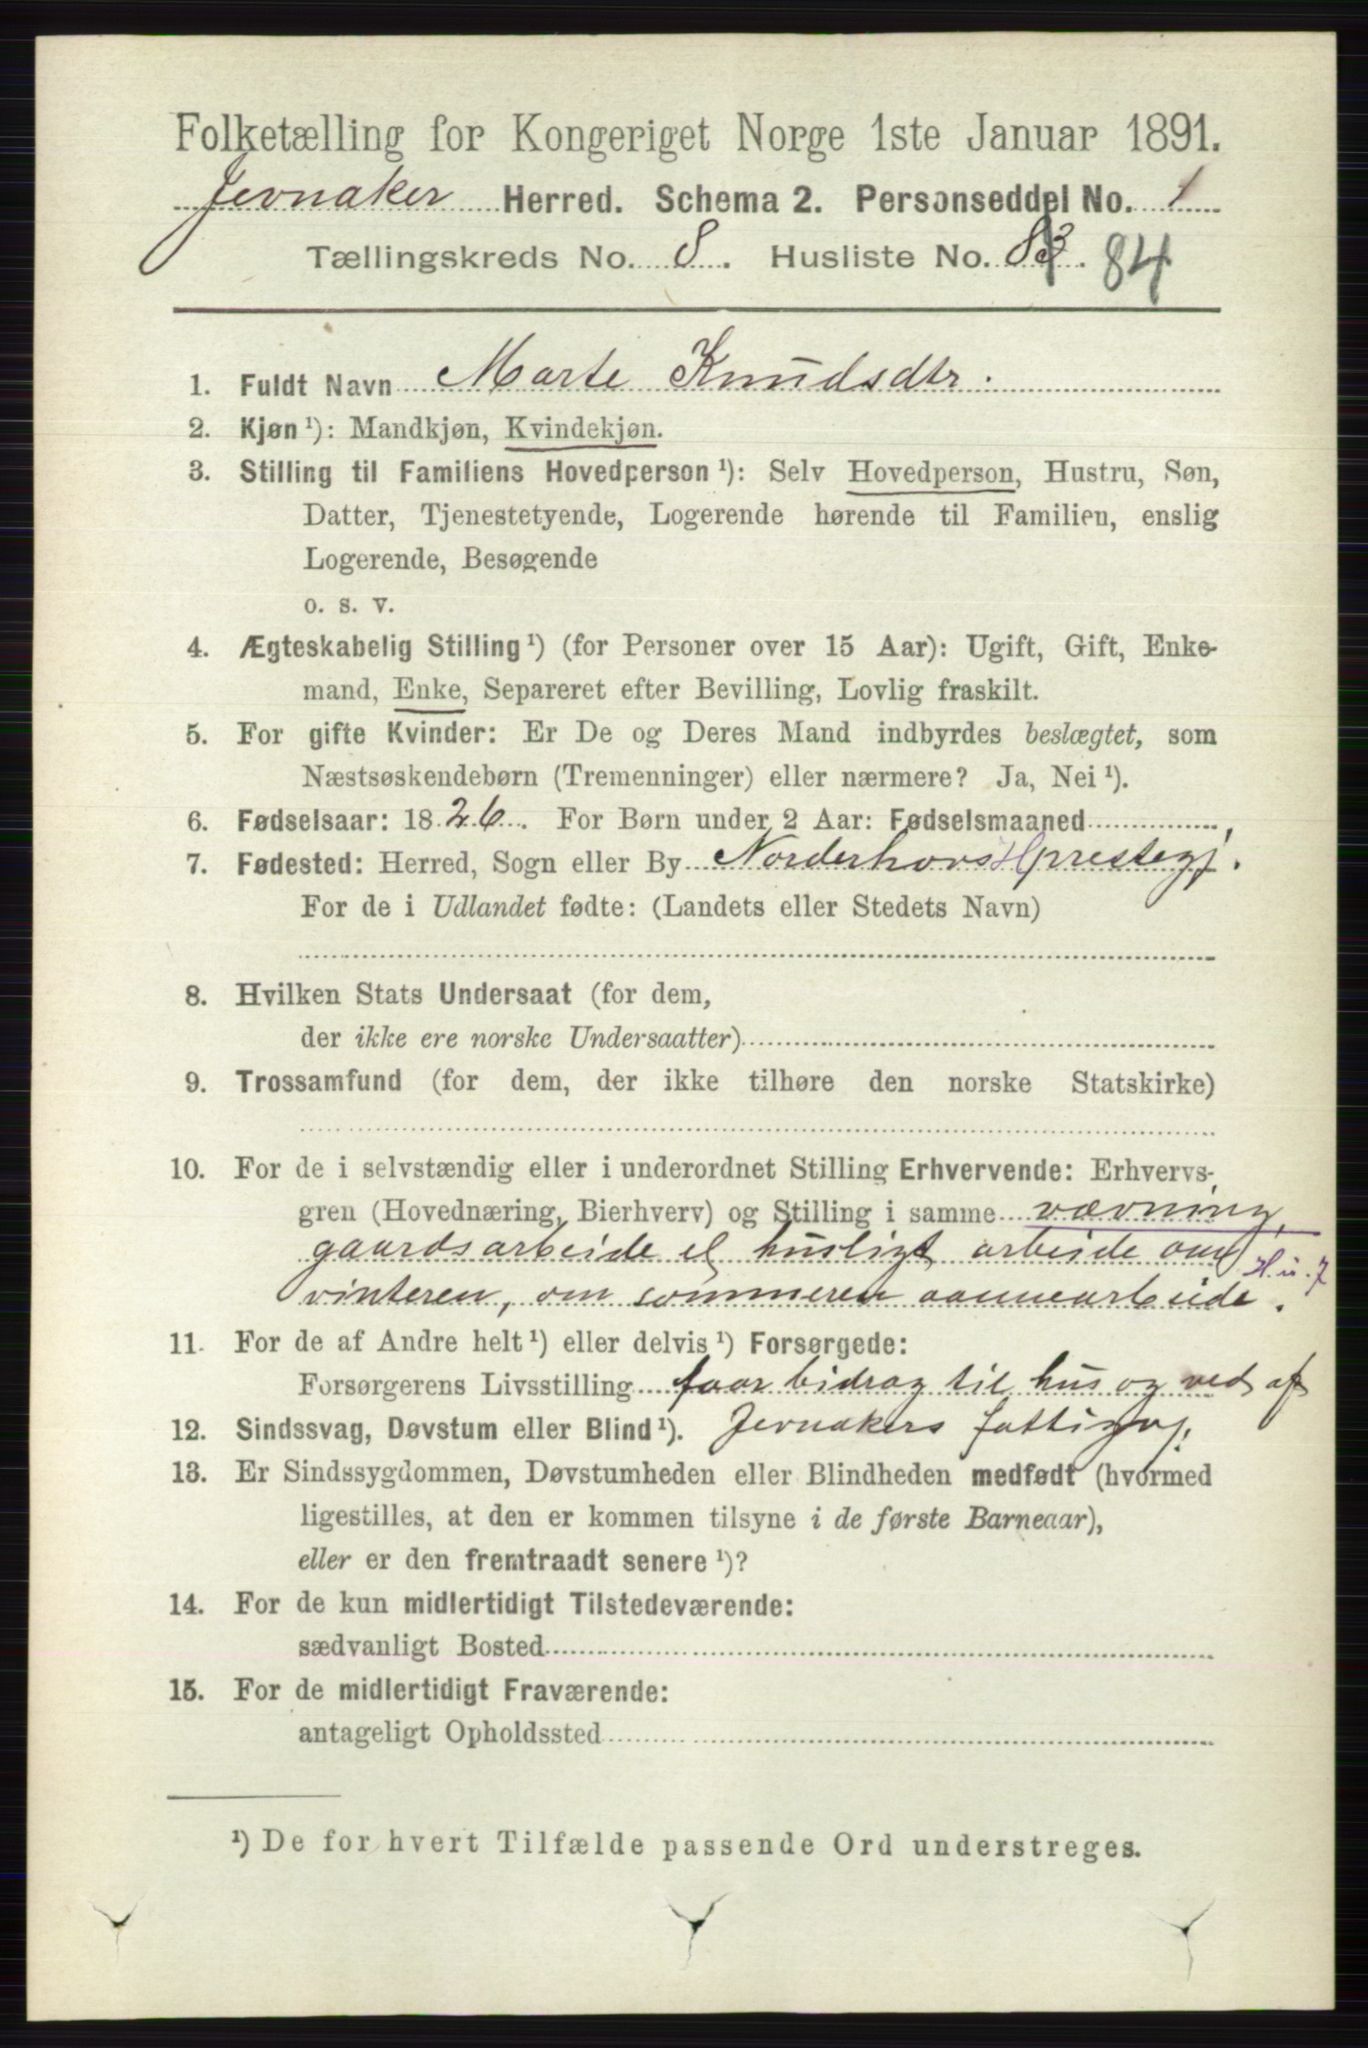 Folketælling for Kongeriget Norge 1ste Januar 1891.
Jevnaker Herred. Schema 2. Personseddel No. 1
Tællingskreds No. 8. Husliste No. 83. 84
1. Fuldt Navn Marte Knudsdtr.
2. Kjøn ¹): Mandkjøn, Kvindekjøn.
3. Stilling til Familiens Hovedperson ¹): Selv Hovedperson, Hustru, Søn,
Datter, Tjenestetyende, Logerende hørende til Familien, enslig
Logerende, Besøgende
o. s. v.
4. Ægteskabelig Stilling ¹) (for Personer over 15 Aar): Ugift, Gift, Enke-
mand, Enke, Separeret efter Bevilling, Lovlig fraskilt.
5. For gifte Kvinder: Er De og Deres Mand indbyrdes beslægtet, som
Næstsøskendebørn (Tremenninger) eller nærmere? Ja, Nei ¹).
6. Fødselsaar: 1826. For Børn under 2 Aar: Fødselsmaaned
7. Fødested: Herred, Sogn eller By Norderhovs H prestegj.
For de i Udlandet fødte: (Landets eller Stedets Navn)
8. Hvilken Stats Undersaat (for dem,
der ikke ere norske Undersaatter)
9. Trossamfund (for dem, der ikke tilhøre den norske Statskirke)
10. For de i selvstændig eller i underordnet Stilling Erhvervende: Erhvervs-
gren (Hovednæring, Bierhverv) og Stilling i samme vævning,
gaardsarbeide el husligt arbeide om
vinteren, om sommeren aannearbeide. H.u.7
11. For de af Andre helt ¹) eller delvis ¹) Forsørgede:
Forsørgerens Livsstilling faar bidrag til hus og ved af
12. Sindssvag, Døvstum eller Blind ¹). Jevnakers fattigv.
13. Er Sindssygdommen, Døvstumheden eller Blindheden medfødt (hvormed
ligestilles, at den er kommen tilsyne i de første Barneaar),
eller er den fremtraadt senere ¹)?
14. For de kun midlertidigt Tilstedeværende:
sædvanligt Bosted
15. For de midlertidigt Fraværende:
antageligt Opholdssted
¹) De for hvert Tilfælde passende Ord understreges.